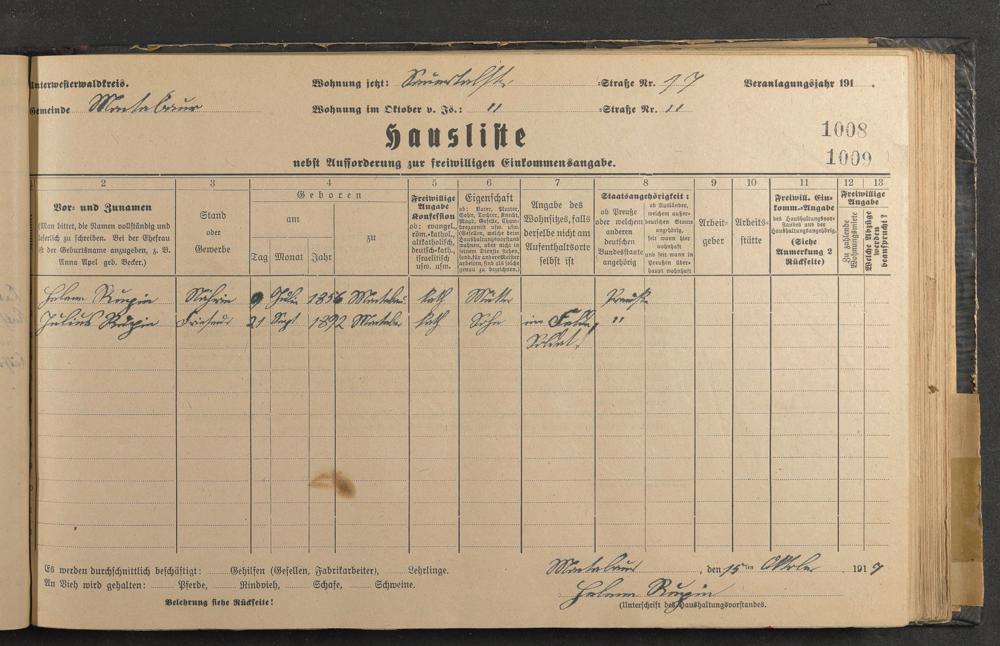 Unterwesterwaldkreis.
Wohnung jetzt: Sauertalstr. =Straße Nr. 17 Veranlagungsjahr 191 .
Gemeinde Montabaur Wohnung im Oktober v. Js.: " =Straße Nr. "
Hausliste
nebst Aufforderung zur freiwilligen Einkommensangabe.
1008
1009
2 3 4 5 6 7 8 9 10 11 12 13
Vor- und Zunamen
(Man bittet, die Namen vollständig und
leserlich zu schreiben. Bei der Ehefrau
ist der Geburtsname anzugeben, z. B.
Anna Apel geb. Becker.)
Stand
oder
Gewerbe
Geboren
am
zu
Tag Monat Jahr
Freiwillige
Angabe
Konfession
ob: evangel.,
röm.-kathol.,
altkatholisch,
deutsch-kath.,
israelitisch
usw. usw.
Eigenschaft
ob: Vater, Mutter,
Sohn, Tochter, Knecht,
Angabe des
Wohnsitzes, falls
derselbe nicht am
Aufenthaltsorte
selbst ist
Staatsangehörigkeit:
ob Preuße
oder welchem
anderen
deutschen
Bundesstaate
angehörig
ob Ausländer,
welchem außer-
deutschen Staate
angehörig,
seit wann hier
wohnhaft
und seit wann in
Preußen über-
haupt wohnhaft
Arbeit-
geber
Arbeits-
stätte
Freiwill. Ein-
komm.-Angabe
des Haushaltungsvor-
standes und der
Haushaltungsangehörig.
(Siehe
Anmerkung 2
Rückseite)
Freiwillige
Angabe
Zu zahlende
Wohnungsmiete
Welche Abzüge
werden
beansprucht?
Helena Näherin 9 Juli 1856 Montabaur kath Mutter Preuße
Julius Friseur 21 Sept 1892 Montabaur kath Sohn im Felde, "
Soldat!
Es werden durchschnittlich beschäftigt: Gehilfen (Gesellen, Fabrikarbeiter), Lehrlinge.
An Vieh wird gehalten: Pferde, Rindvieh, Schafe, Schweine.
Belehrung siehe Rückseite!
Montabaur , den 15ten Oktober 1917
Helena
(Unterschrift des Haushaltungsvorstandes.